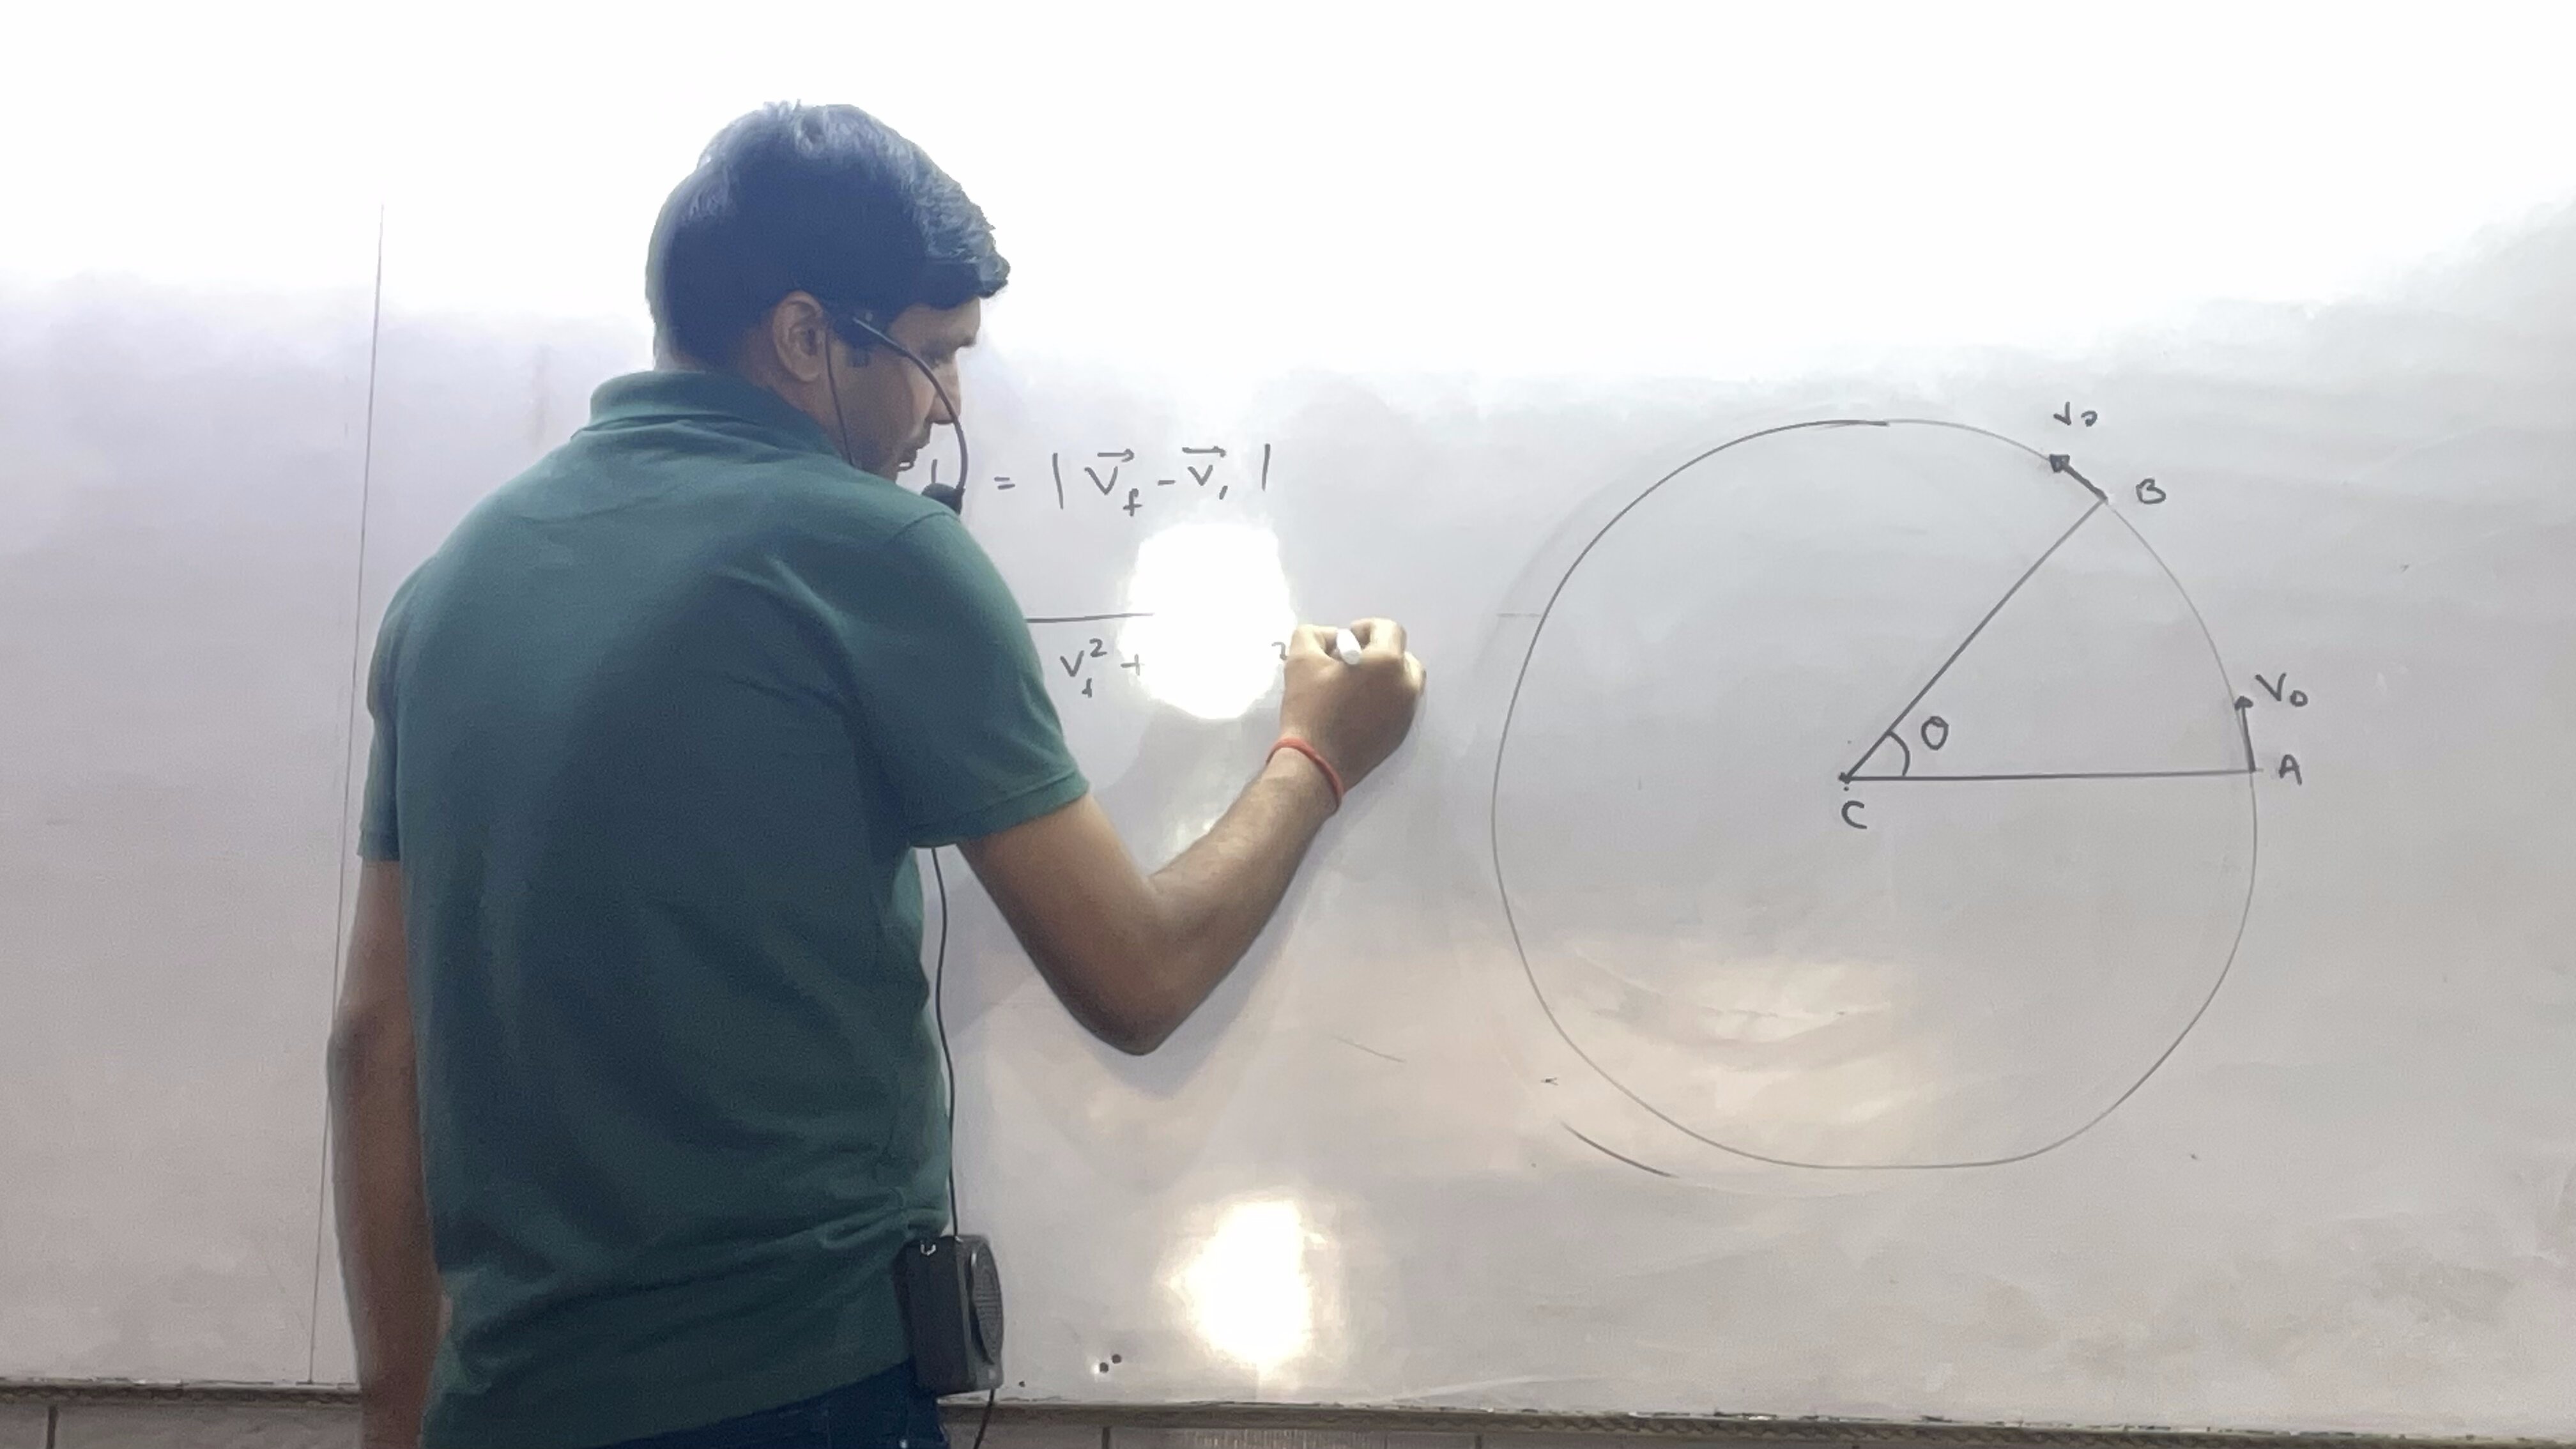 = | V⃗f - V⃗i |
Vf² + ²
V0
B
V0
θ
A
C